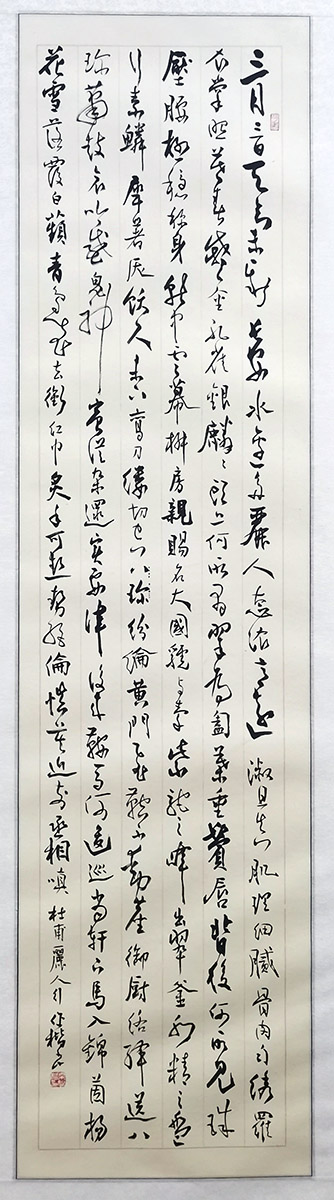 三月三日天氣新長安水邊多麗人態濃意遠淑且真肌理細膩骨肉勻綉羅
衣裳照暮春蹙金孔雀銀麒麟頭上何所有翠為匎葉垂鬢唇背後何所見珠
壓腰衱穩稱身就中雲幕椒房親賜名大國虢與秦紫駝之峰出翠釜水精之盤
行素鱗犀箸厭飫久未下鸞刀縷切空八珍紛綸黃門飛鞚不動塵御厨絡繹送八
珍簫鼓哀吟感鬼神賓從雜遝實要津後來鞍馬何逡巡當軒下馬入錦茵楊
花雪落覆白蘋青鳥飛去銜紅巾炙手可熱勢絕倫慎莫近前丞相嗔 杜甫麗人行